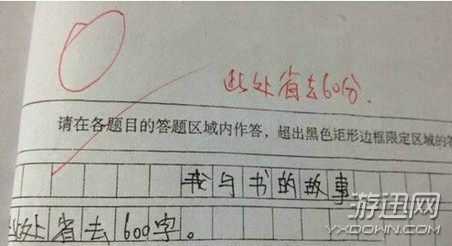 此处省去60分.
请在各题目的答题区域内作答，超出黑色矩形边框限定区域的答
我与书的故事
此处省去600字。
游迅网
YXDOWN.COM